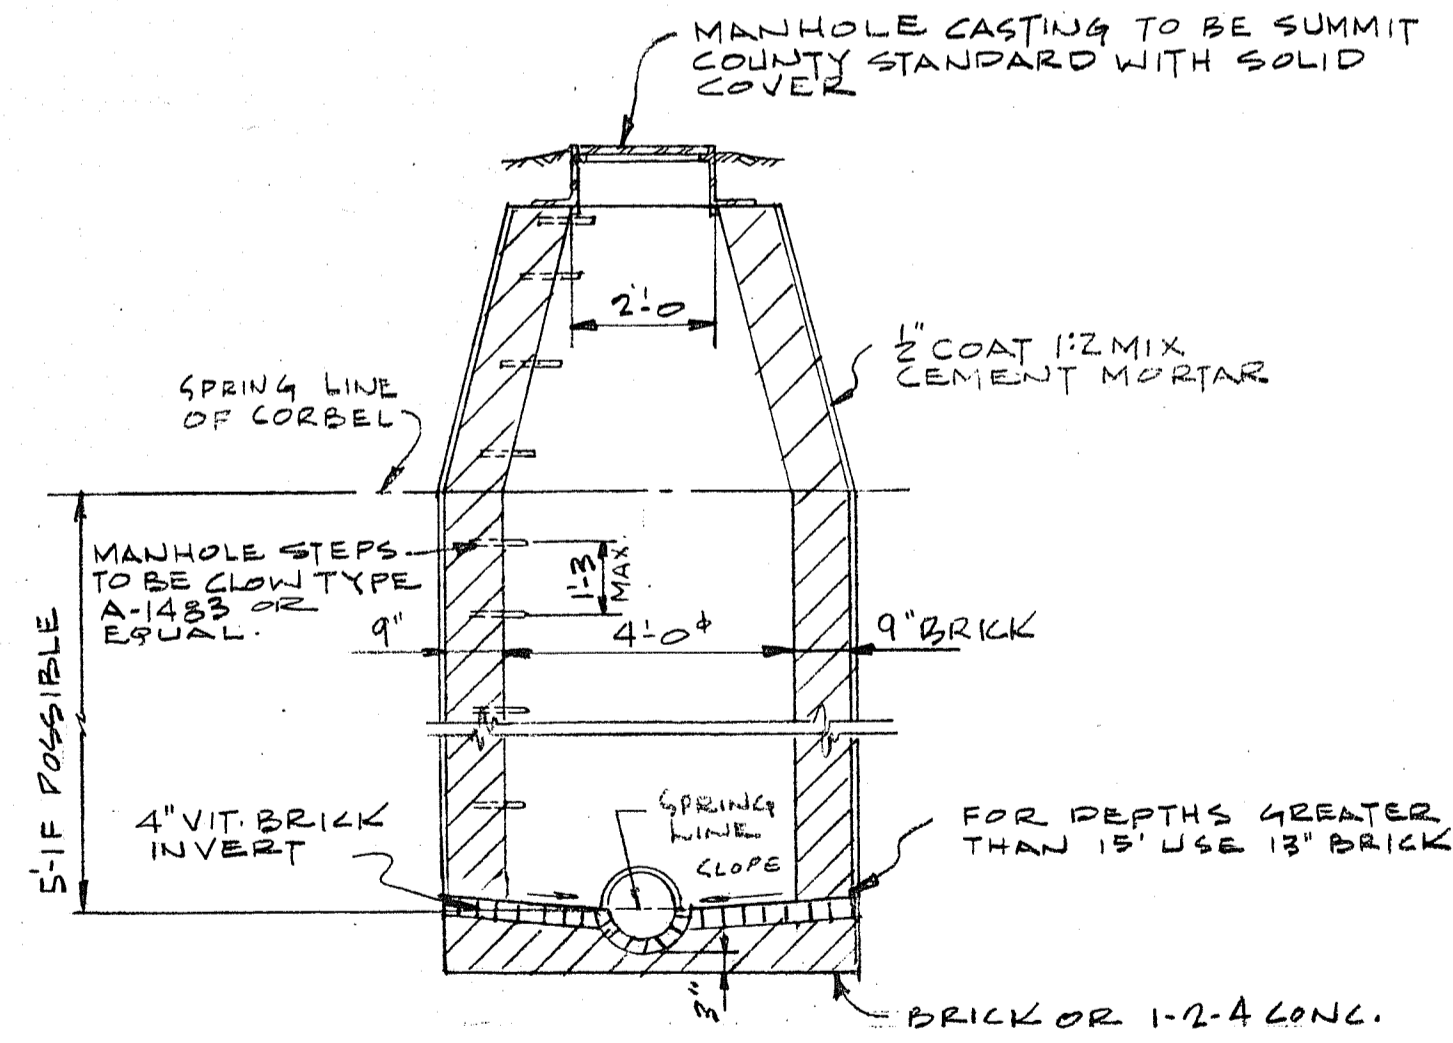 MANHOLE CASTING TO BE SUMMIT
COUNTY STANDARD WITH SOLID
COVER
2'-0
1/2" COAT 1:2 MIX
CEMENT MORTAR
SPRING LINE
OF CORBEL
MANHOLE STEPS
TO BE CLOW TYPE
A-1483 OR
EQUAL.
1'-3
MAX.
9"
4'-0 ϕ
9" BRICK
5'-IF POSSIBLE
4" VIT. BRICK
INVERT
SPRING
LINE
SLOPE
FOR DEPTHS GREATER
THAN 15' USE 13" BRICK
3"
BRICK OR 1-2-4 CONC.